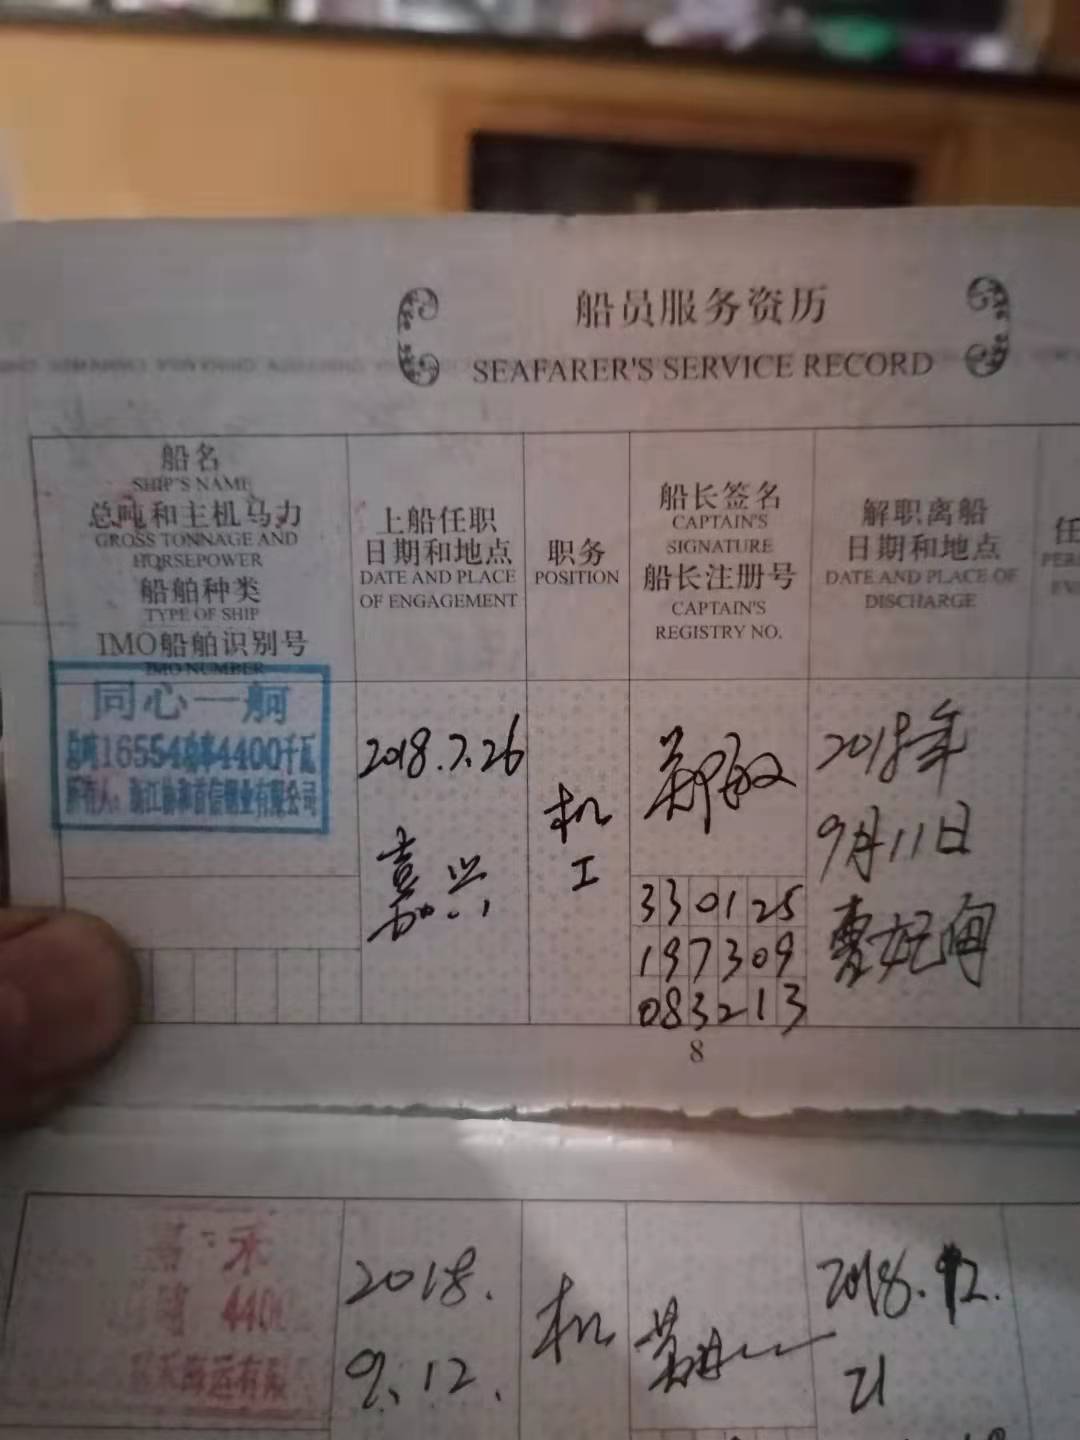 船员服务资历
SEAFARER'S SERVICE RECORD
船名
SHIP'S NAME
总吨和主机马力
GROSS TONNAGE AND
HORSEPOWER
船舶种类
TYPE OF SHIP
IMO船舶识别号
IMO NUMBER
上船任职
日期和地点
DATE AND PLACE
OF ENGAGEMENT
职务
POSITION
船长签名
CAPTAIN'S
SIGNATURE
船长注册号
CAPTAIN'S
REGISTRY NO.
解职离船
日期和地点
DATE AND PLACE OF
DISCHARGE
任
同心一舸
总吨16554功率4400千瓦
所有人：浙江协和首信钢业有限公司
2018.7.26
嘉兴
机
工
郑敏
330125
197309
083213
2018年
9月11日
曹妃甸
8
禾
440
海运有限
2018.
9.12.
机
2018.12.
21